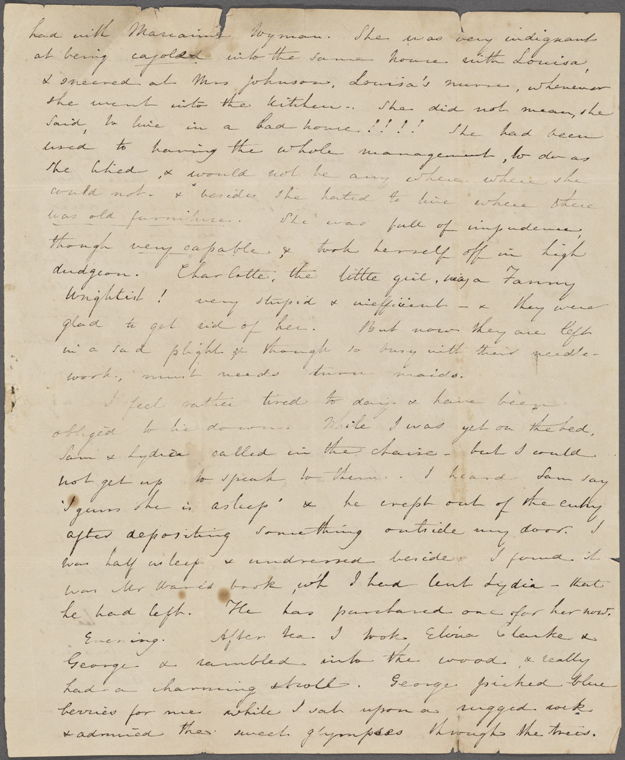 had with Mariann Wyman. She was very indignant
at being cajoled into the same house with Louisa,
& sneered at Mrs Johnson, Louisa's nurse, whenever
she went into the kitchen. She did not mean, she
said, to live in a bad house!!!! She had been
used to having the whole management, to do as
she liked, & would not be any where where she
could not. & besides she hated to live where there
was old furniture. She was full of impudence,
though very capable, & took herself off in high
dudgeon. Charlotte, the little girl, was a Fanny
Wrightist! very stupid & inefficient – & they were
glad to get rid of her. But now they are left
in a sad plight, & though so busy with their needle-
work, must needs turn maids.
I feel rather tired to day & have been
obliged to lie down. While I was yet on the bed,
Sam & Lydia called in the chaise – but I could
not get up to speak to them. I heard Sam say
'I guess she is asleep' & he crept out of the entry
after depositing something outside my door. I
was half asleep & undressed beside. I found it
was Mr Ware's book, wh I had lent Lydia – that
he had left. He has purchased one for her now.
Evening. After tea I took Eliza Clarke &
George & rambled into the wood & really
had a charming stroll. George picked blue
berries for me while I sat upon a rugged rock
& admired the sweet glympses through the trees.